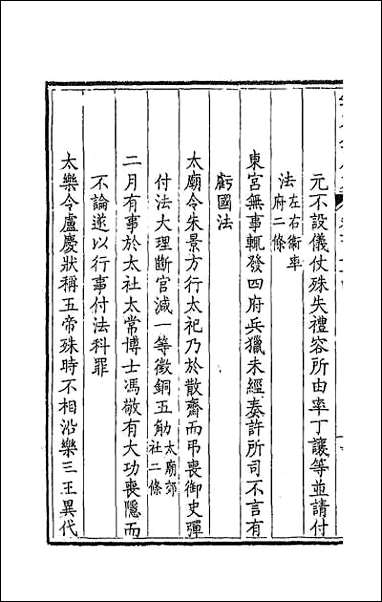 元不設儀仗殊失禮容所由率丁讓等並請付
法左右衛率府二條
東宮無事輒發四府兵獵未經奏許所司不言有
虧國法
太廟令朱景方行太祀乃於散齋而弔喪御史彈
付法大理斷官減一等徵銅五觔太廟郊社二條
二月有事於太社太常博士馮敬有大功喪隱而
不論遂以行事付法科罪
太樂令盧慶狀稱五帝殊時不相沿樂三王異代